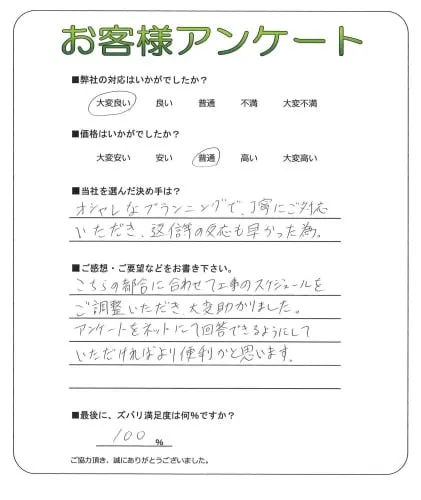 お客様アンケート
■弊社の対応はいかがでしたか?
大変良い 良い 普通 不満 大変不満
■価格はいかがでしたか?
大変安い 安い 普通 高い 大変高い
■当社を選んだ決め手は?
オシャレなプランニングで、丁寧にご対応
いただき、返信等の反応も早かった為。
■ご感想・ご要望などをお書き下さい。
こちらの都合に合わせて工事のスケジュールを
ご調整いただき、大変助かりました。
アンケートをネットにて回答できるようにして
いただければより便利かと思います。
■最後に、ズバリ満足度は何%ですか?
100 %
ご協力頂き、誠にありがとうございました。